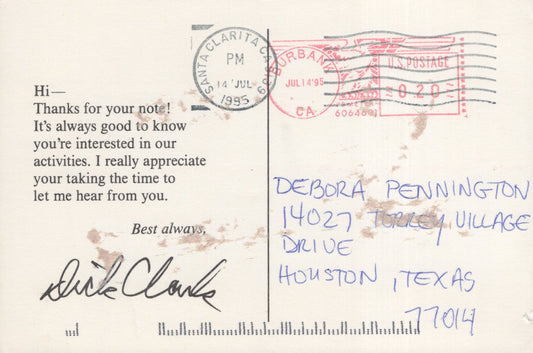 SANTA CLARITA CA
PM
14 JUL
1995
BURBANK
JUL 14 '95
CA
U.S. POSTAGE
0.20
Hi—
Thanks for your note!
It's always good to know
you're interested in our
activities. I really appreciate
your taking the time to
let me hear from you.
Best always,
Dick Clark
DEBORA PENNINGTON
14027 TORREY VILLAGE
DRIVE
HOUSTON, TEXAS
77014